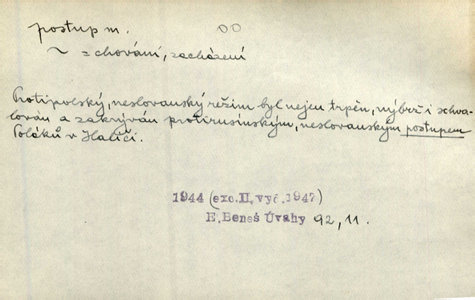 postup m. OO
~ = chování, zacházení
Protipolský, neslovanský režim byl nejen trpěn, nýbrž i schva-
lován a zakrýván protirusínským, neslovanským postupem
Poláků v Haliči.
1944 (exc.II, vyč.1947)
E.Beneš Úvahy 92, 11.